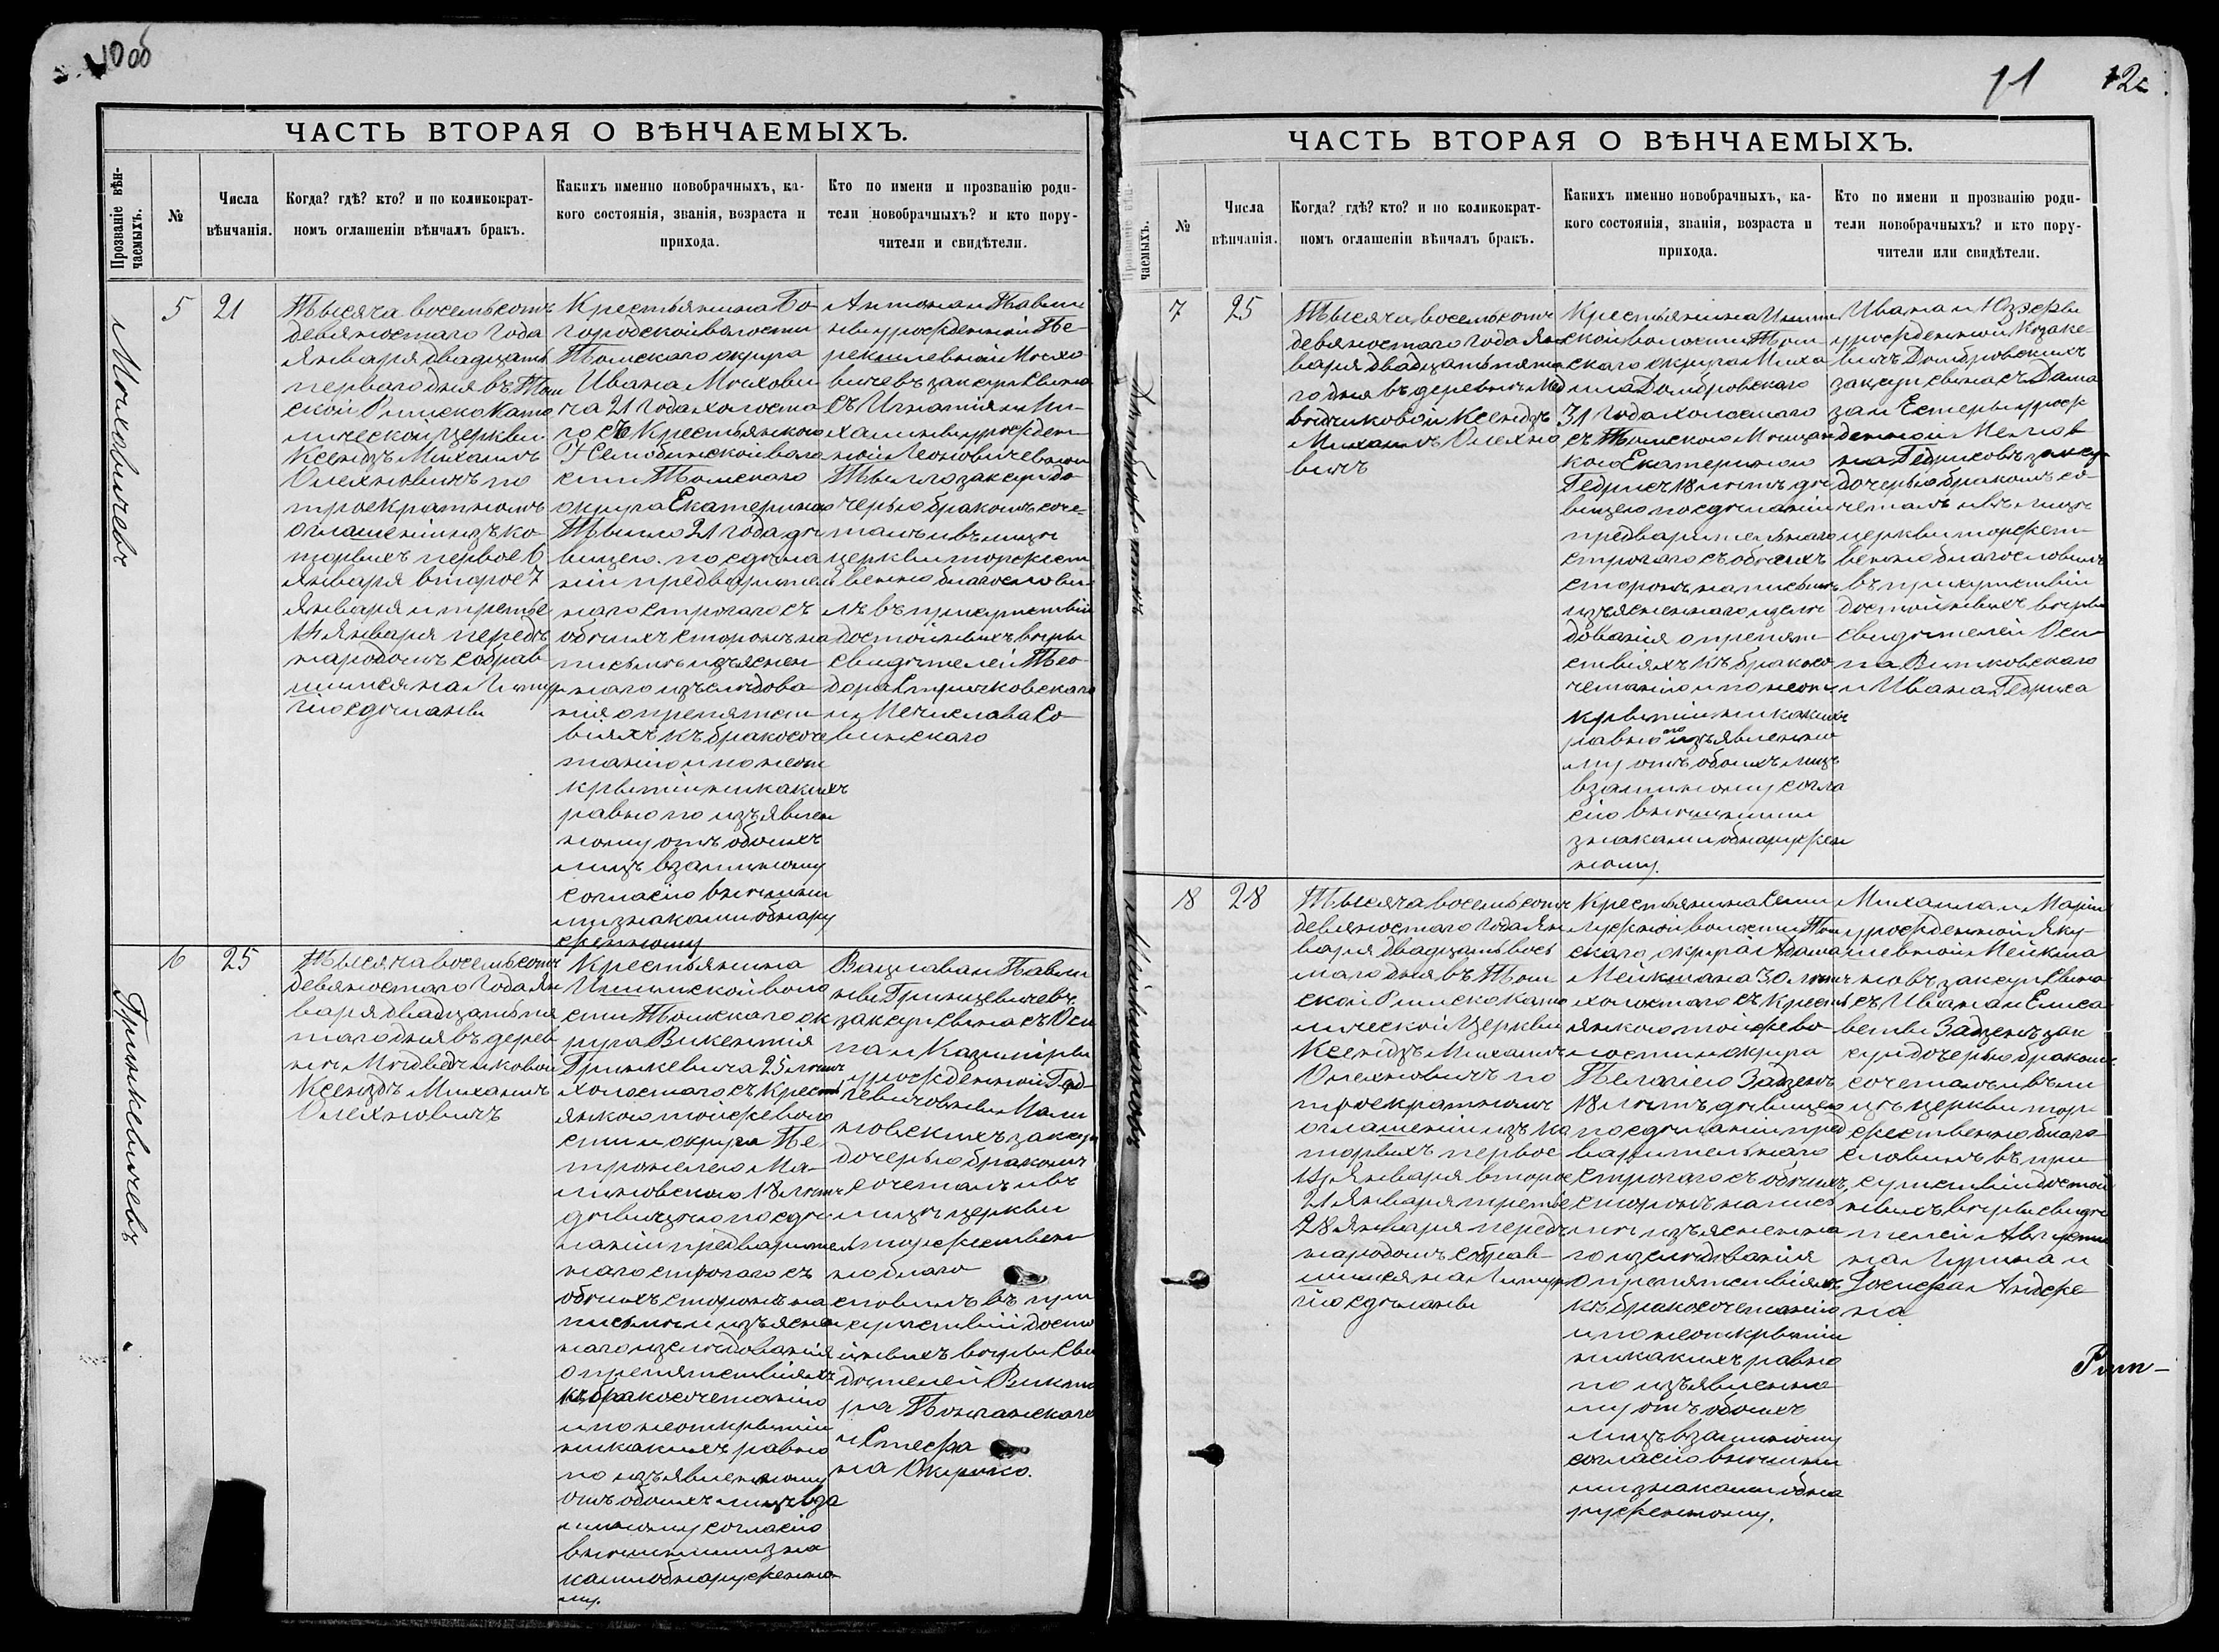 10 об
ЧАСТЬ ВТОРАЯ О ВѢНЧАЕМЫХЪ.
Прозваніе вѣн-
чаемыхъ.
№
Числа
вѣнчанія.
Когда? гдѣ? кто? и по коликократ-
номъ оглашеніи вѣнчалъ бракъ.
Какихъ именно новобрачныхъ, ка-
кого состоянія, званія, возраста и
прихода.
Кто по имени и прозванію роди-
тели новобрачныхъ? и кто пору-
чители и свидѣтели.
Мохховичевъ
5
21
Тысяча восемьсотъ
девяностаго Года
Января двадцать
перваго дня въ Том
ской Римско Като
лической Церкви
Ксендзъ Михаилъ
Олехновичъ по
троекратномъ
оглашеніи изъ ко-
торыхъ первое 6
Января второе 7
Января и третье
14 Января передъ
народомъ собрав
шимся на Литур
гію сдѣланы
Крестьянина Бо-
городской волости
Томскаго округа
Ивана Мохови
ча 21 Года холоста
го съ Крестьянкою
Семилужской воло
сти Томскаго
округа Екатериною
Тылло 21 года дѣ
вицею. по сдѣла
ніи предварител
наго строгаго съ
обоихъ сторонъ на
письмѣ изъяснен
наго изслѣдова-
нія о препятст
віяхъ къ бракосоче
танію и по неот
крытіи никакихъ
равно по изъявлен
ному отъ обоихъ
лицъ взаимному
согласію внѣшни
ми знаками обнару
женному
Антона и Павли
ны урожденной Пе
рекилевной Мохо
вичевъ законн Сына
съ Игнатія и Ми-
халины урожден-
ной Леоновичевной
Тылло закон до
черью бракомъ соче-
талъ и въ лицѣ
церкви торжест
венно благослови-
лъ въ присутствіи
достойныхъ вѣры
свидѣтелей Тео-
дора Стрычковскаго
и Мечислава Со-
бинскаго
6
25
Гринкевичевъ
Тысяча восемьсотъ
девяностаго Года Ян
варя двадцать пя
таго дня въ дерев
нѣ Мѣдведчиковой
Ксендзъ Михаилъ
Олехновичъ
Крестьянина
Ишимской воло
сти Томскаго ок
руга Викентія
Гринкевича 25 лѣтъ
холостаго съ Крестья
янкою той же воло
сти и округа Пе
тронелею Ма-
линовскою 18 лѣтъ
дѣвицею по сдѣ
ланіи предварител
наго строгаго съ
обоихъ сторонъ на
письмѣ изъяснен
наго изслѣдованія
о препятствіяхъ
къ бракосочетанію
и по неоткрытіи
никакихъ равно
по изъявленному
отъ обоихъ лицъ вза
имному согласію
внѣшними зна
ками обнаруженно
му.
Вацлава и Павли
ны Гринцевичевъ
закон Сына съ Оси
па и Казиміры
урожденной
Мали
новскихъ закон
дочерью бракомъ
сочеталъ и въ
лицѣ церкви
торжествен
но благо
словилъ въ при
сутствіи досто
йныхъ вѣры Сви
дѣтелей Викто
ра Познанскаго
и Стефа
на Окушко.
11
12
ЧАСТЬ ВТОРАЯ О ВѢНЧАЕМЫХЪ.
Прозваніе вѣн-
чаемыхъ.
№
Числа
вѣнчанія.
Когда? гдѣ? кто? и по коликократ-
номъ оглашеніи вѣнчалъ бракъ.
Какихъ именно новобрачныхъ, ка-
кого состоянія, званія, возраста и
прихода.
Кто по имени и прозванію роди-
тели новобрачныхъ? и кто пору-
чители или свидѣтели.
7
25
Тысяча восемьсотъ
девяностаго Года Ян
варя двадцать пята
го дня въ деревнѣ Мед
вѣдчиковой Ксендзъ
Михаилъ Олехно
вичъ
Крестьянина Ишим
ской волости Том
скаго округа Миха
ила Домбровскаго
31 Года холостаго
съ Томскою Мѣщан
кою Екатериною
Гедрисъ 18 лѣтъ дѣ
вицею по сдѣланіи
предварительнаго
строгаго съ обоихъ
сторонъ на письмѣ
изъясненнаго изслѣ
дованія о препят-
ствіяхъ къ бракосо
четанію и по неот
крытіи никакихъ
равно по изъявленно
му отъ обоихъ лицъ
взаимному согла
сію внѣшними
знаками обнаружен
ному.
Ивана и Юзефы
урожденной Козаке-
вичъ Домбровскихъ
закон сына съ
и Естеры урож
денной
закон
дочерью бракомъ со-
четалъ и въ лицѣ
церкви торжест-
венно благословилъ
въ присутствіи
достойныхъ вѣры
свидѣтелей Оси-
па Витковскаго
и Ивана Гедриса
8
28
Мейкшановъ
Тысяча восемьсотъ
девяностаго Года Ян
варя двадцать вось
маго дня въ Том
ской Римско Като
лической Церкви
Ксендзъ Михаилъ
Олехновичъ по
троекратномъ
оглашеніи изъ ко
торыхъ первое
14 Января второе
21 Января третье
28 Января передъ
народомъ собрав-
шимся на Литур
гію сдѣланы
Крестьянина Семи
лужной волости Том
скаго округа Адама
Мейкшана 30 лѣтъ
холостаго съ Кресть
янкою той же во-
лости и округа
Пелагіею Задзенъ
18 лѣтъ дѣвицею
по сдѣланіи пред
варительнаго
строгаго съ обоихъ
сторонъ на пись
мѣ изъясненна
го изслѣдованія
о препятствіяхъ
къ бракосочетанію
и по неоткрытіи
никакихъ равно
по изъявленно
му отъ обоихъ
лицъ взаимному
согласію внѣшни
ми знаками обна
руженному.
Михаила и Маріи
урожденной Яку-
левной Мейкша
новъ закон Сына
съ Ивана и Елиса
веты Задзенъ зак
он дочерью бракомъ
сочеталъ и въ ли
цѣ церкви тор
жественно благо-
словилъ въ при
сутствіи достой
ныхъ вѣры свидѣ
телей Августи
на Лурина и
Іосифа Андже
на
Рим-